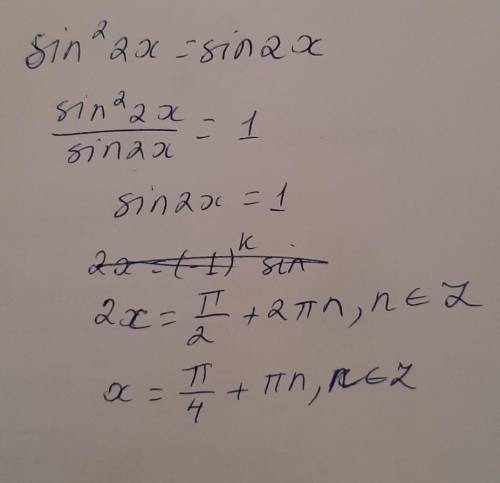 sin² 2x = sin2x
sin² 2x / sin2x = 1
sin2x = 1
2x = (-1)^k sin
2x = π/2 + 2πn, n ∈ Z
x = π/4 + πn, n ∈ Z